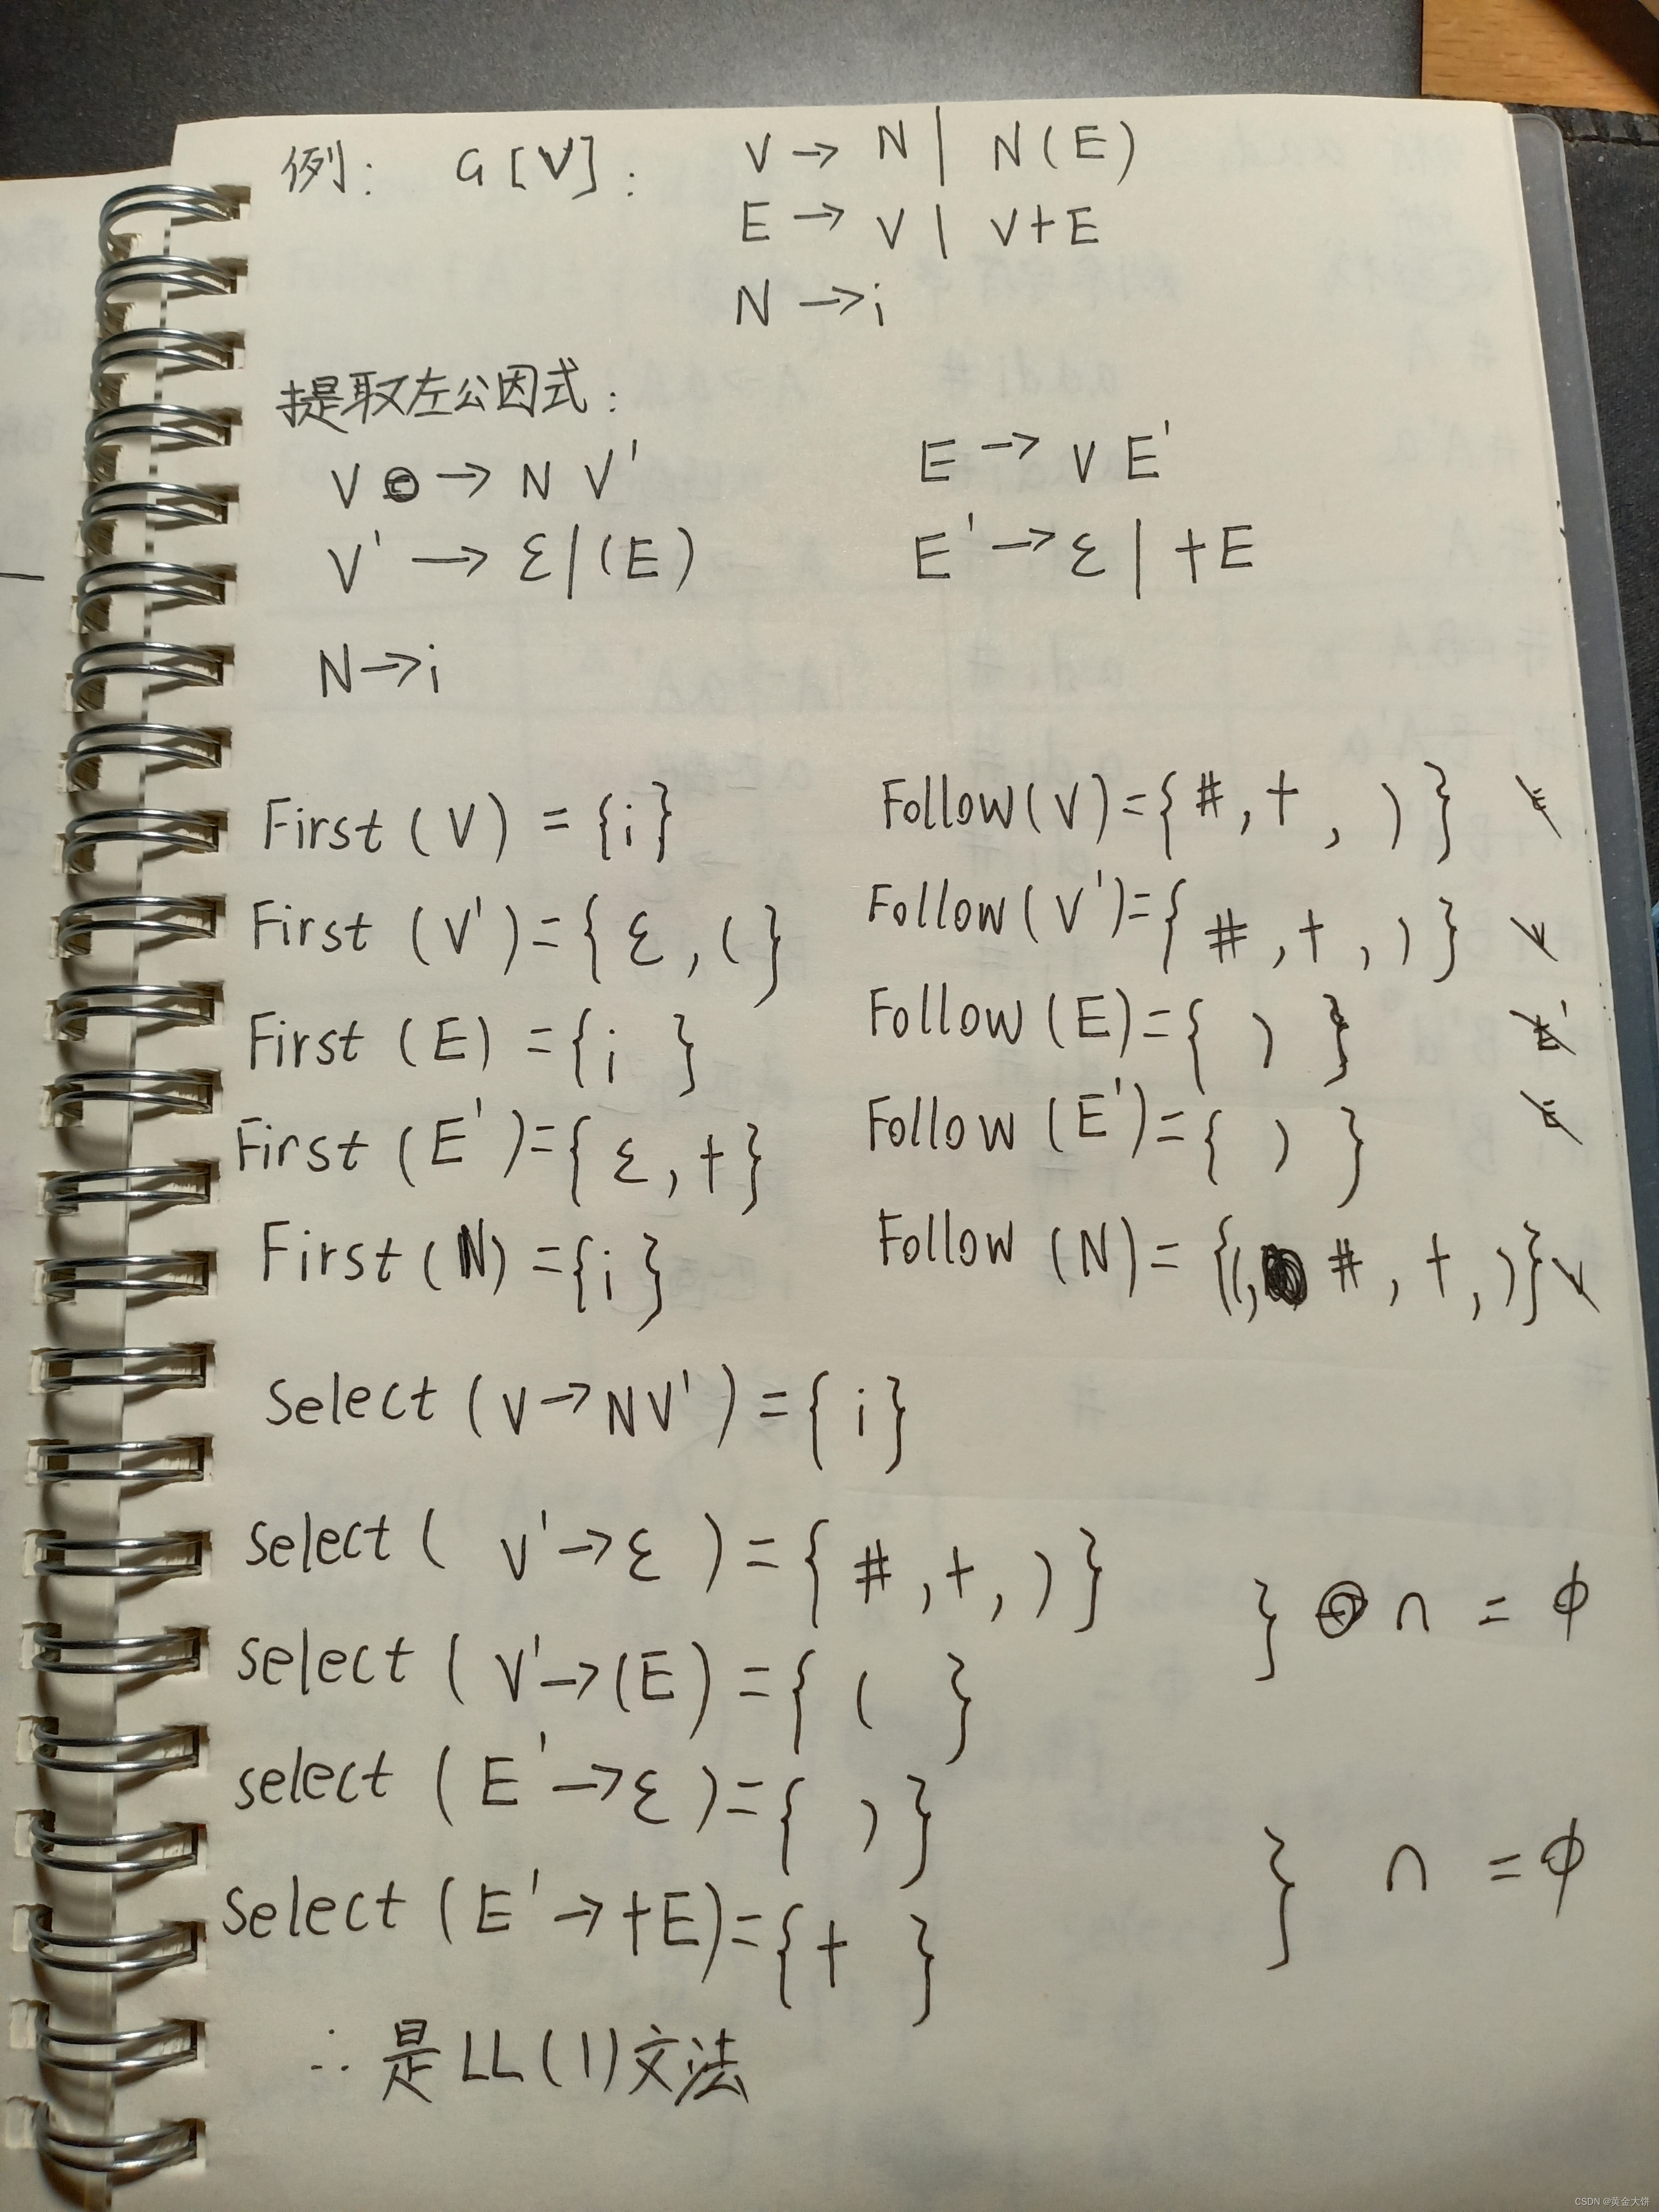 例: G[V]: V → N | N(E)
E → V | V+E
N → i
提取左公因式:
V → N V' E → V E'
V' → ε | (E) E' → ε | +E
N → i
First (V) = {i} Follow(V)={#,+,)}
First (V')={ε,(} Follow(V')={#,+,)}
First (E) ={i} Follow (E)={ ) }
First (E')={ε,+} Follow (E')={ ) }
First (N) ={i} Follow (N)= {(,#,+,)}
Select (V→NV') ={i}
select ( V'→ε )={#,+,)} } ∩ = ϕ
select ( V'→(E)={ ( }
select (E'→ε)={ ) } } ∩ =ϕ
select (E'→+E)={+ }
∴是LL(1)文法
CSDN @黄金大饼